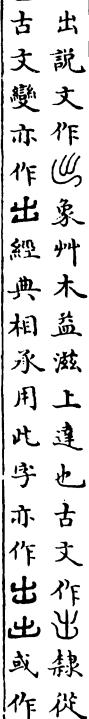 出説文作㞢象艸木益滋上達也古文作㞢隸從
古文變亦作出經典相承用此字亦作岀𡴆或作